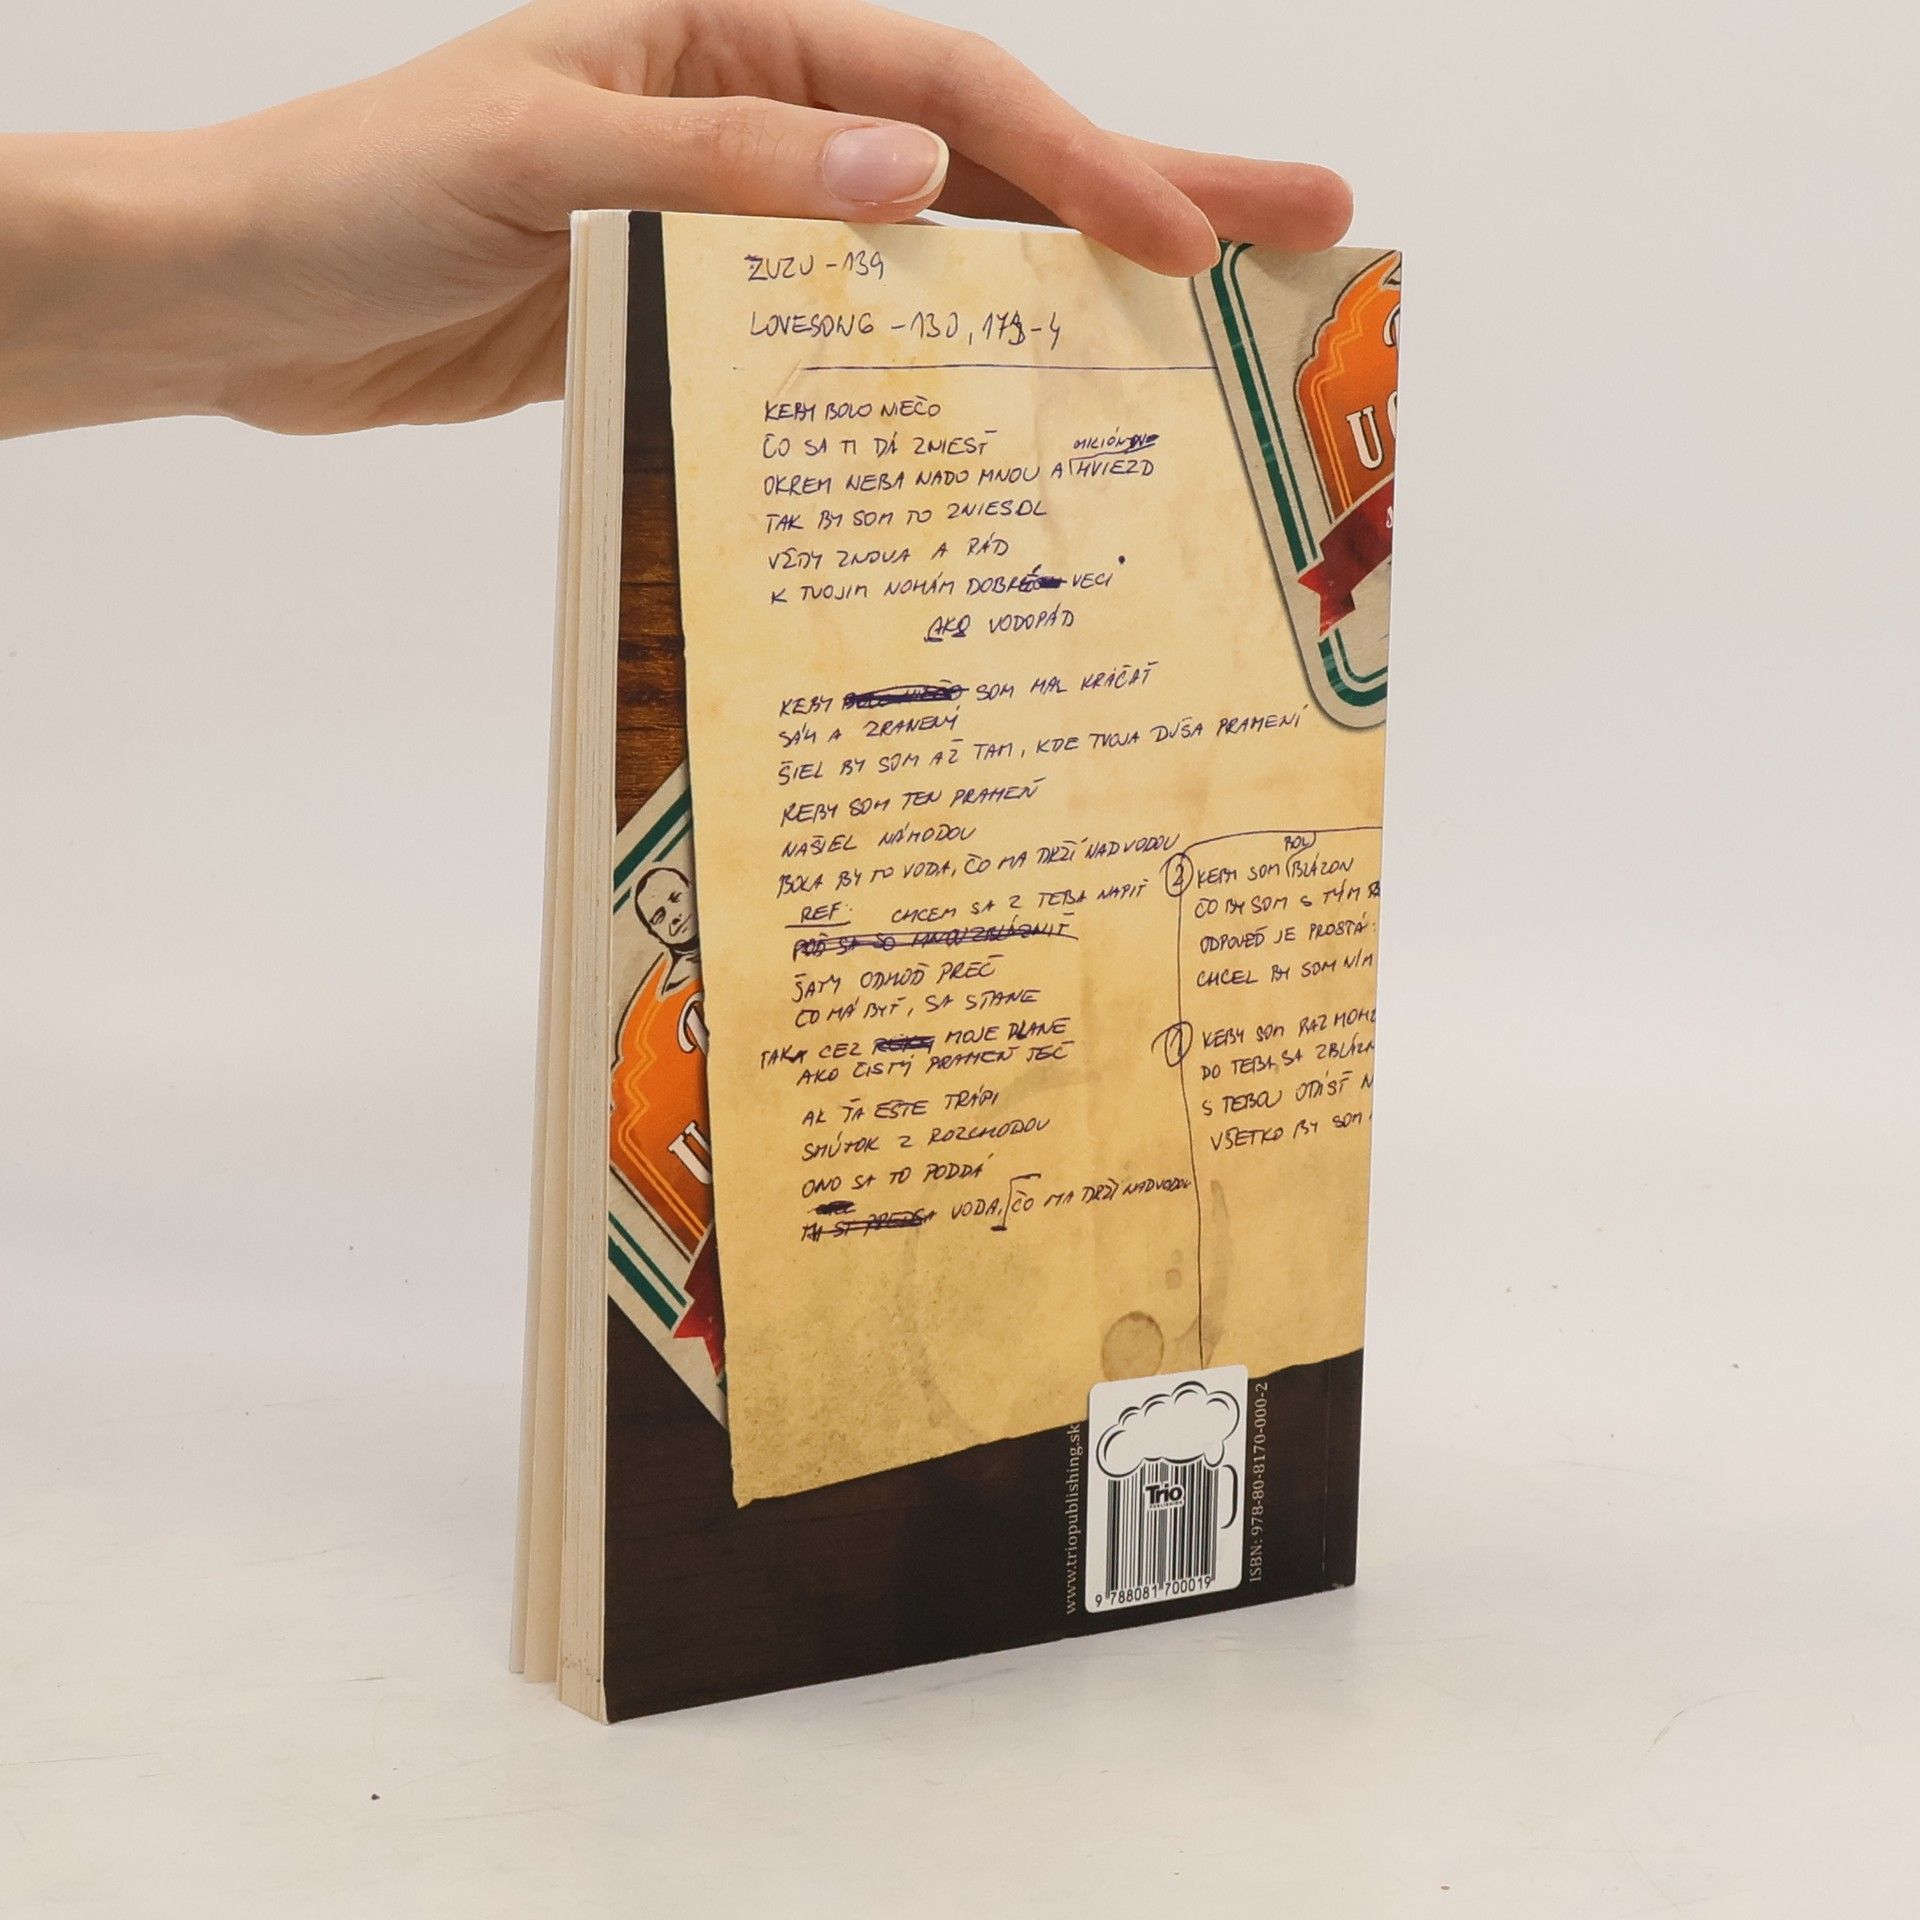 ZUZU - 139
LOVESONG - 130, 173-4
KEBY BOLO NIEČO
ČO SA TI DÁ ZNIESŤ
MILIÓN
OKREM NEBA NADO MNOU A HVIEZD
TAK BY SOM TO ZNIESOL
VŽDY ZNOVA A RÁD
K TVOJIM NOHÁM DOBRÉ VECI
AKO VODOPÁD
KEBY BOLO NIEČO SOM MAL KRÁČAŤ
SÁM A ZRANENÝ
ŠIEL BY SOM AŽ TAM, KDE TVOJA DUŠA PRAMENÍ
KEBY SOM TEN PRAMEŇ
NAŠIEL NÁHODOU
BOLA BY TO VODA, ČO MA DRŽÍ NAD VODOU
REF: CHCEM SA Z TEBA NAPIŤ
POĎ SA SO MNOU ZBLÁZNIŤ
ŠATY ODHOĎ PREČ
ČO MÁ BYŤ, SA STANE
TAK CEZ MOJE DLANE
AKO ČISTÝ PRAMEŇ TEČ
AK ŤA EŠTE TRÁPI
SMÚTOK Z ROZCHODOU
ONO SA TO PODDÁ
VODA, ČO MA DRŽÍ NAD VODOU
BOL
2 KEBY SOM BLÁZON
ČO BY SOM S TÝM
ODPOVEĎ JE PROSTÁ:
CHCEL BY SOM NÍM
1 KEBY SOM RAZ MOHO
DO TEBA SA ZBLÁZN
S TEBOU ODÍSŤ N
VŠETKO BY SOM
U
U
www.triopublishing.sk
Trio
PUBLISHING
9 788081 700019
ISBN: 978-80-8170-000-2